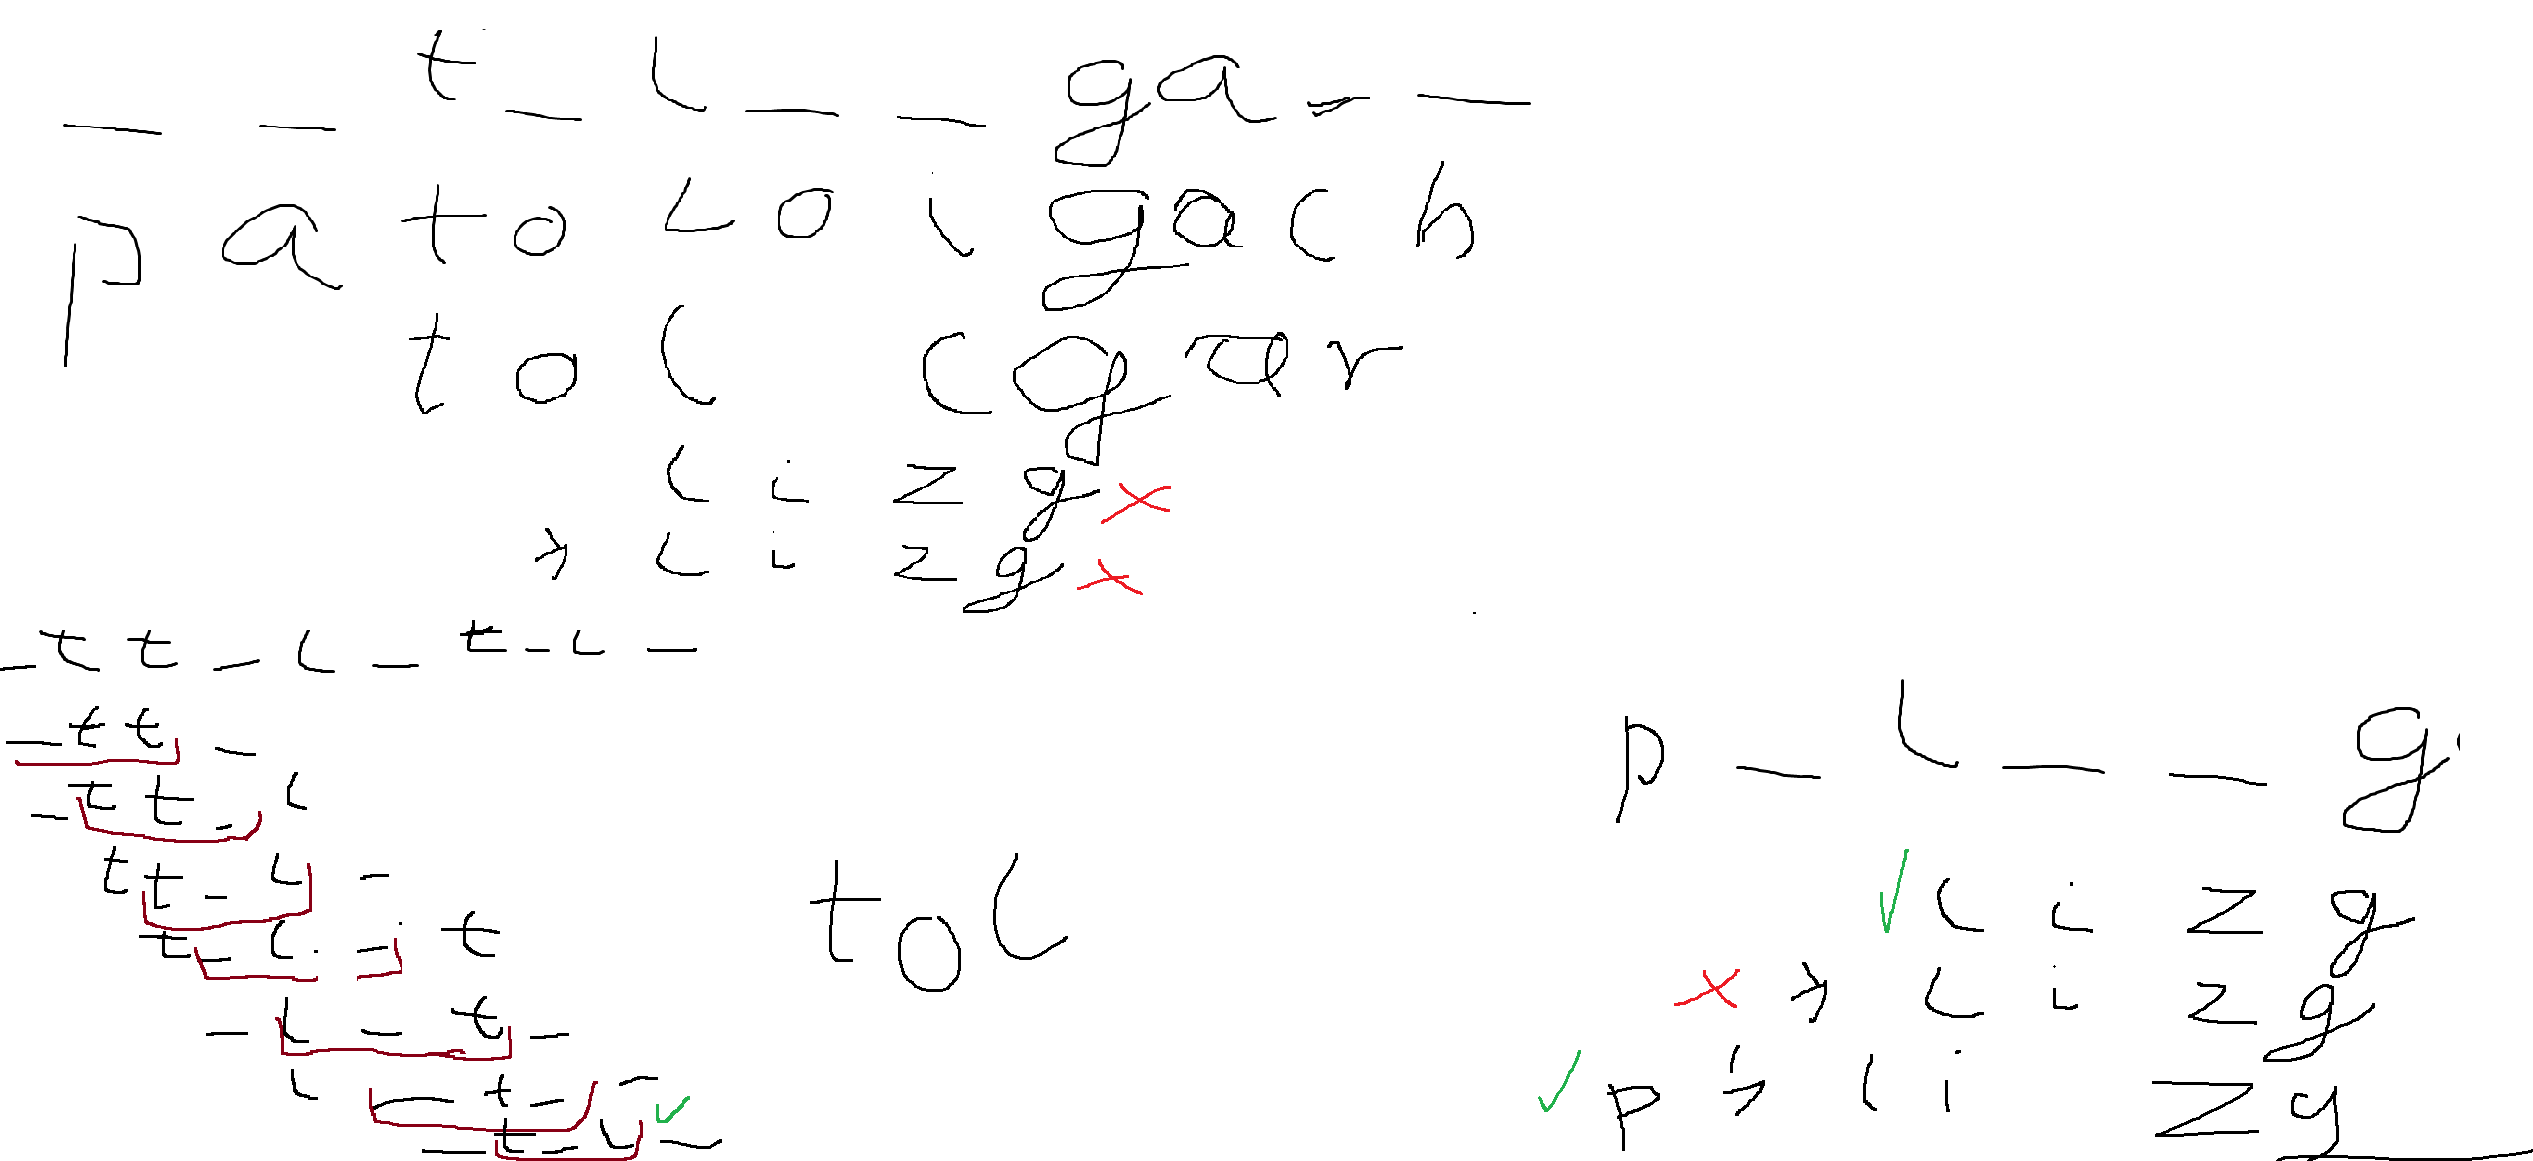 _ _ t _ l _ _ g a _ _
p a t o l o i g a c h
t o l c g a r
l i z g x
> l i z g x
_ t t _ l _ t _ l _
_ t t _
_ t t _ l
t t _ l _
t _ l _ t
_ l _ t _
l _ t _ _
_ t _ l _
t o l
p _ l _ _ g
✓ l i z g
x > l i z g
✓ p > l i z g